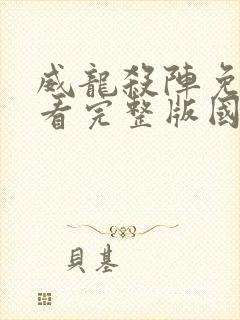 威龍殺陣免
看完整版國
貝基